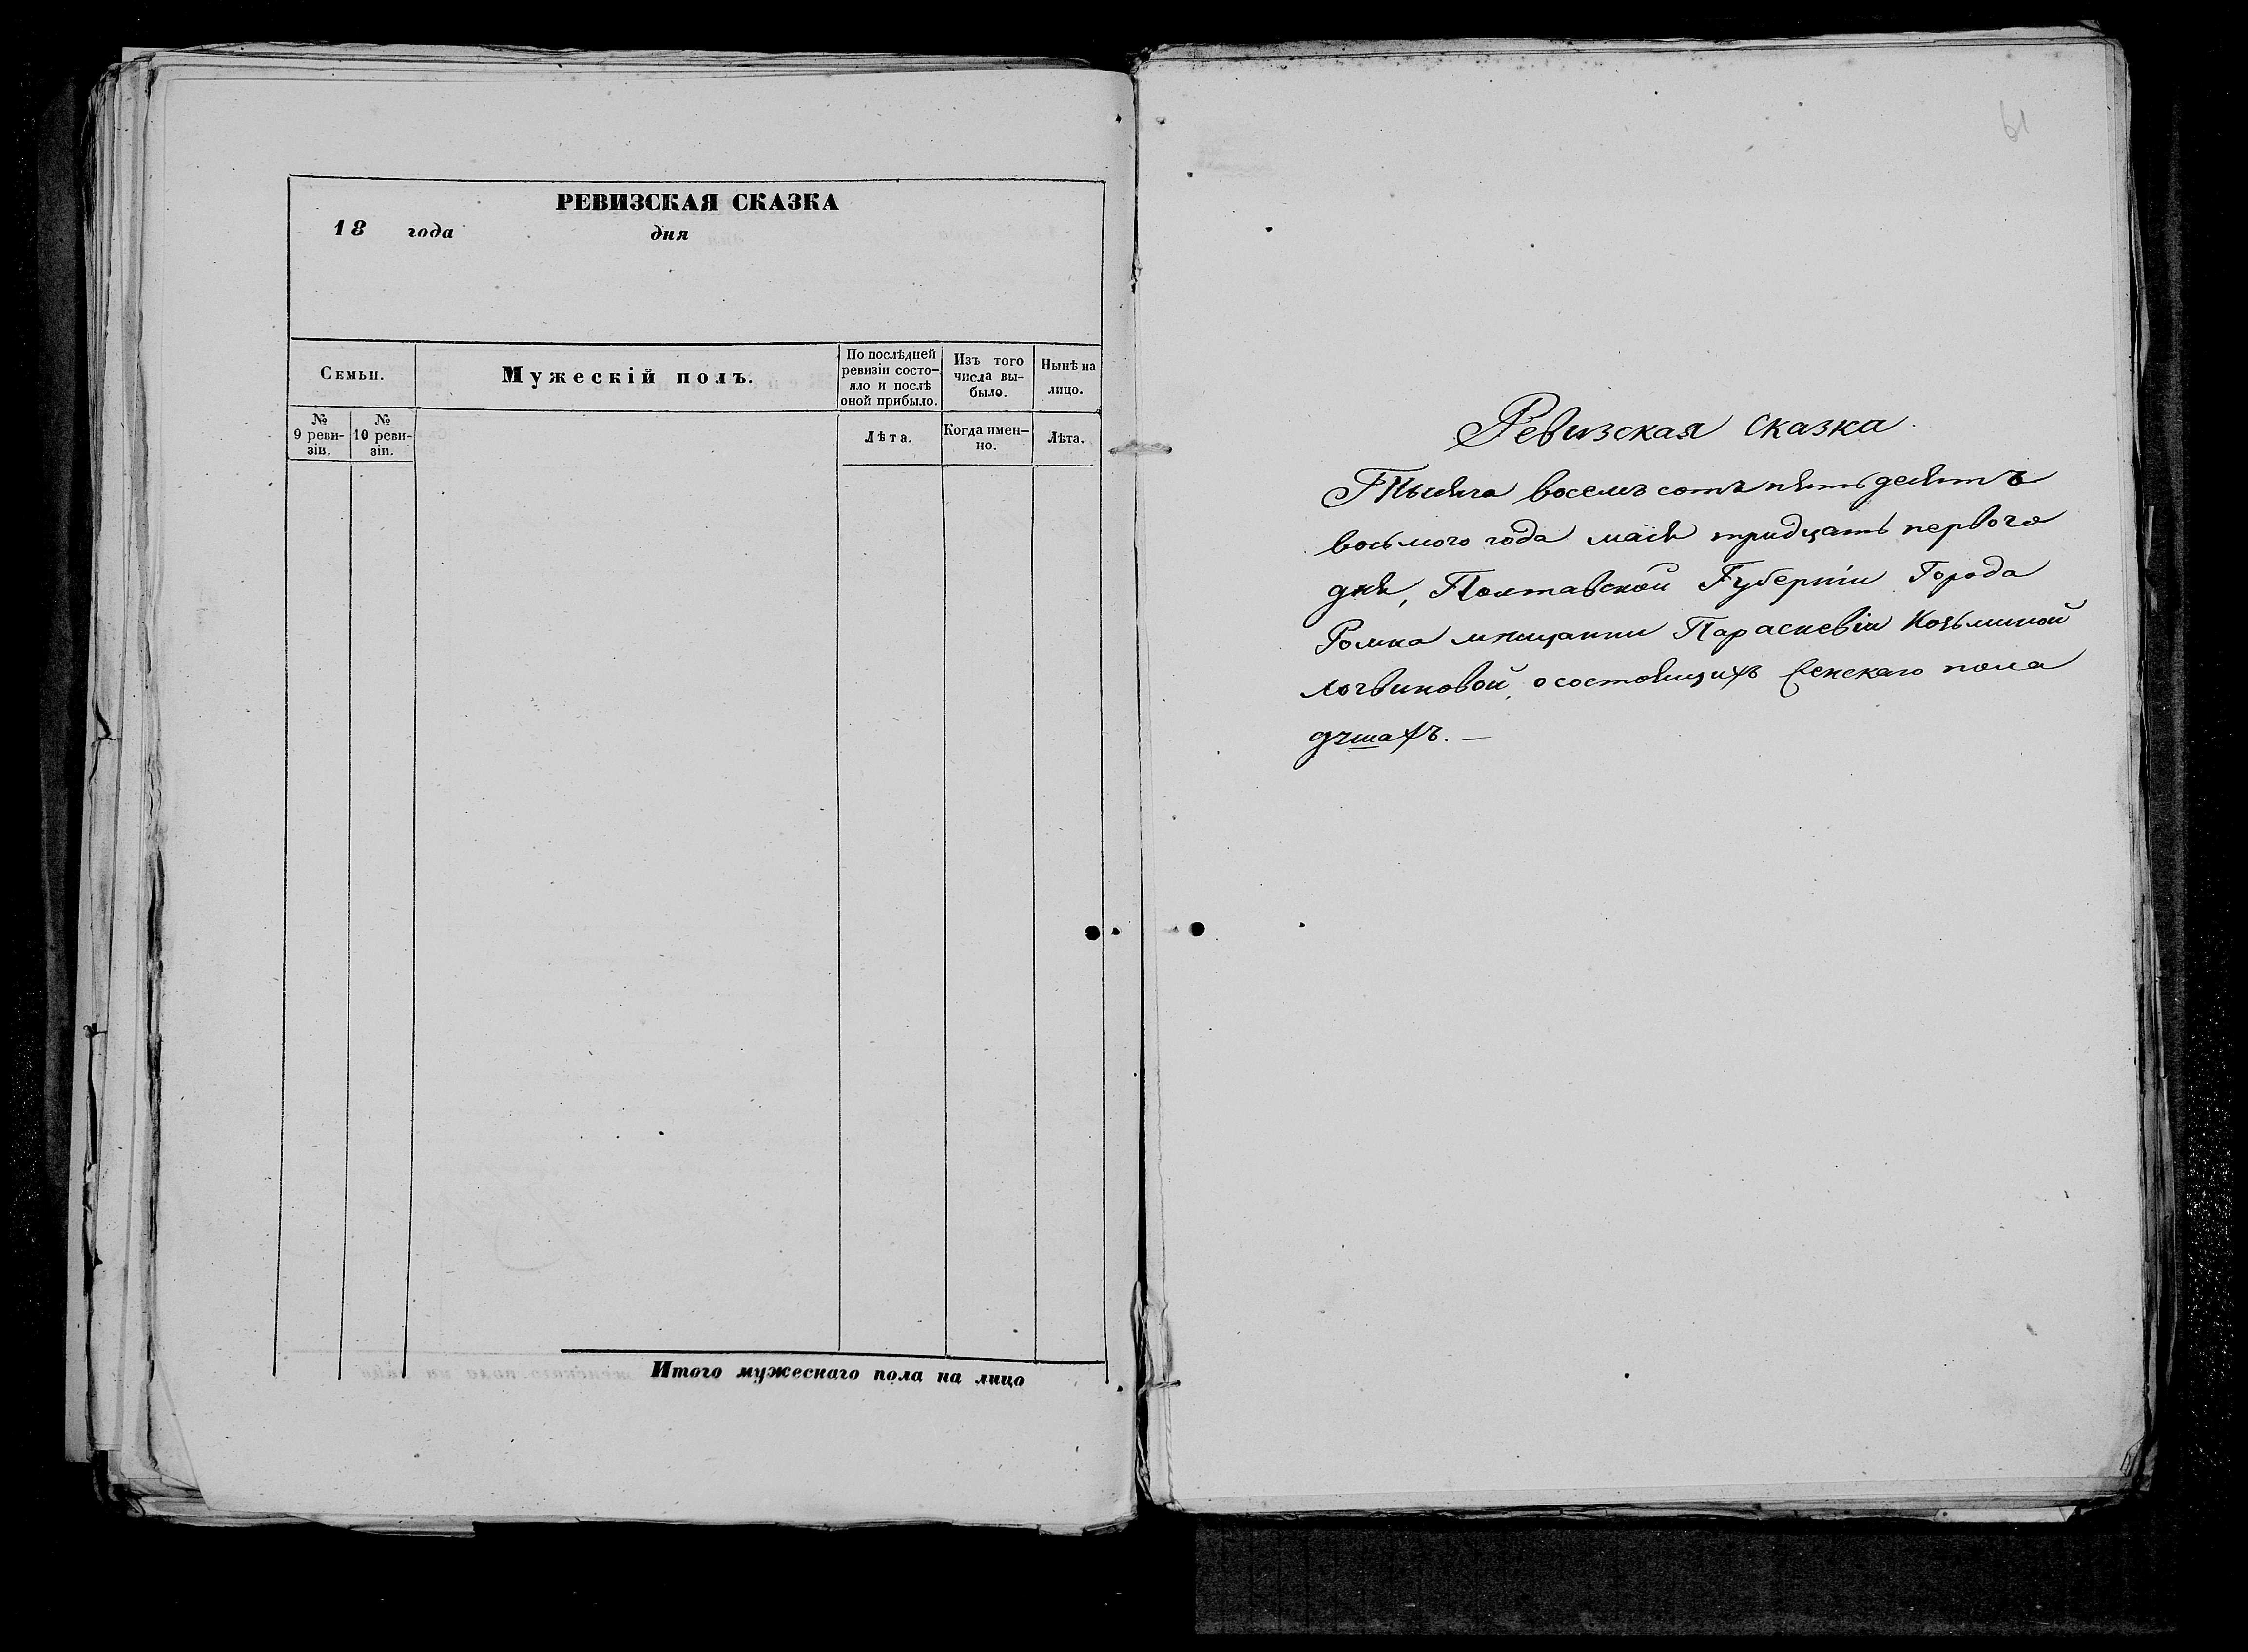 РЕВИЗСКАЯ СКАЗКА
18 года дня
Семьи.
Мужескій полъ.
По послѣдней
ревизіи состо-
яло и послѣ
оной прибыло.
Изъ того
числа вы-
было.
Нынѣ на
лицо.
№
9 реви-
зіи.
№
10 реви-
зіи.
Лѣта.
Когда имен-
но.
Лѣта.
Итого мужескаго пола на лицо
61
Ревизская сказка
Тысяча восемъ сотъ пятьдесятъ
восьмого года маія тридцать первого
дня, Полтавской Губерніи Города
Ромна мѣщанки Параскевіи Козьминой
Логвиновой, о состоящихъ женскаго пола
душахъ. —